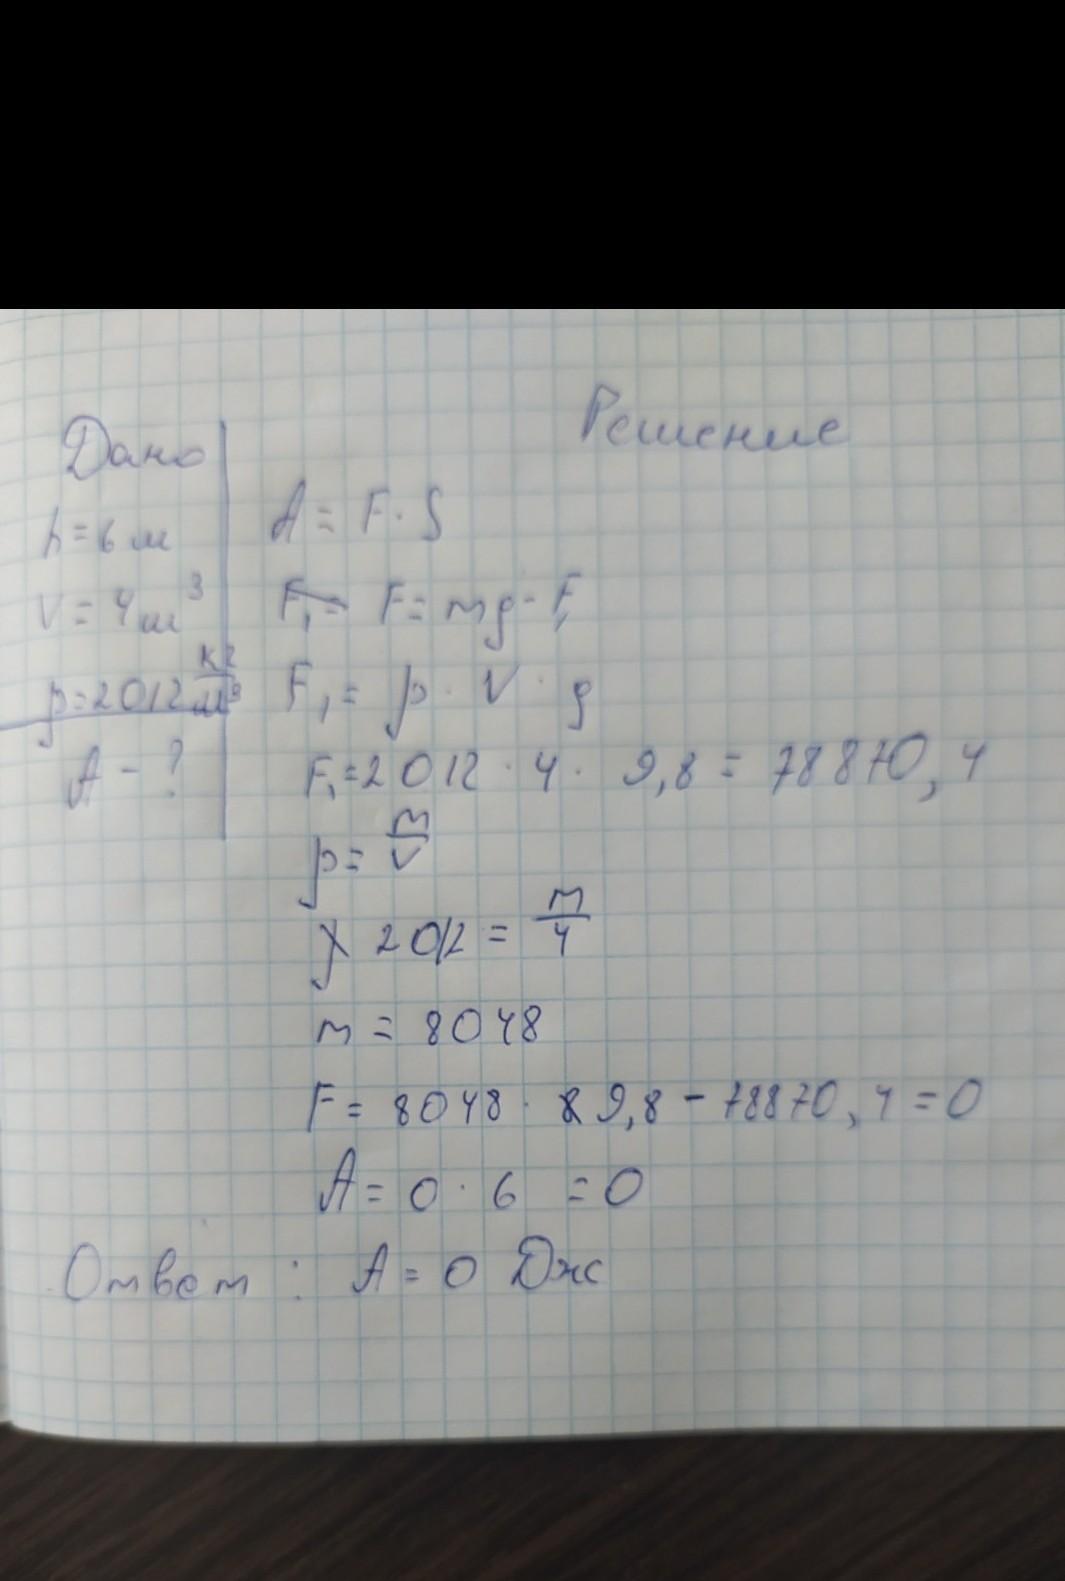 Решение
Дано
h = 6 м
V = 4 м³
p = 2012 кг/м³
A - ?
A = F · S
F₁ = F = mg - F₁
F₁ = p · V · g
F₁ = 2012 · 4 · 9,8 = 78870,4
p = m/V
2012 = m/4
m = 8048
F = 8048 · 9,8 - 78870,4 = 0
A = 0 · 6 = 0
Ответ : A = 0 Дж